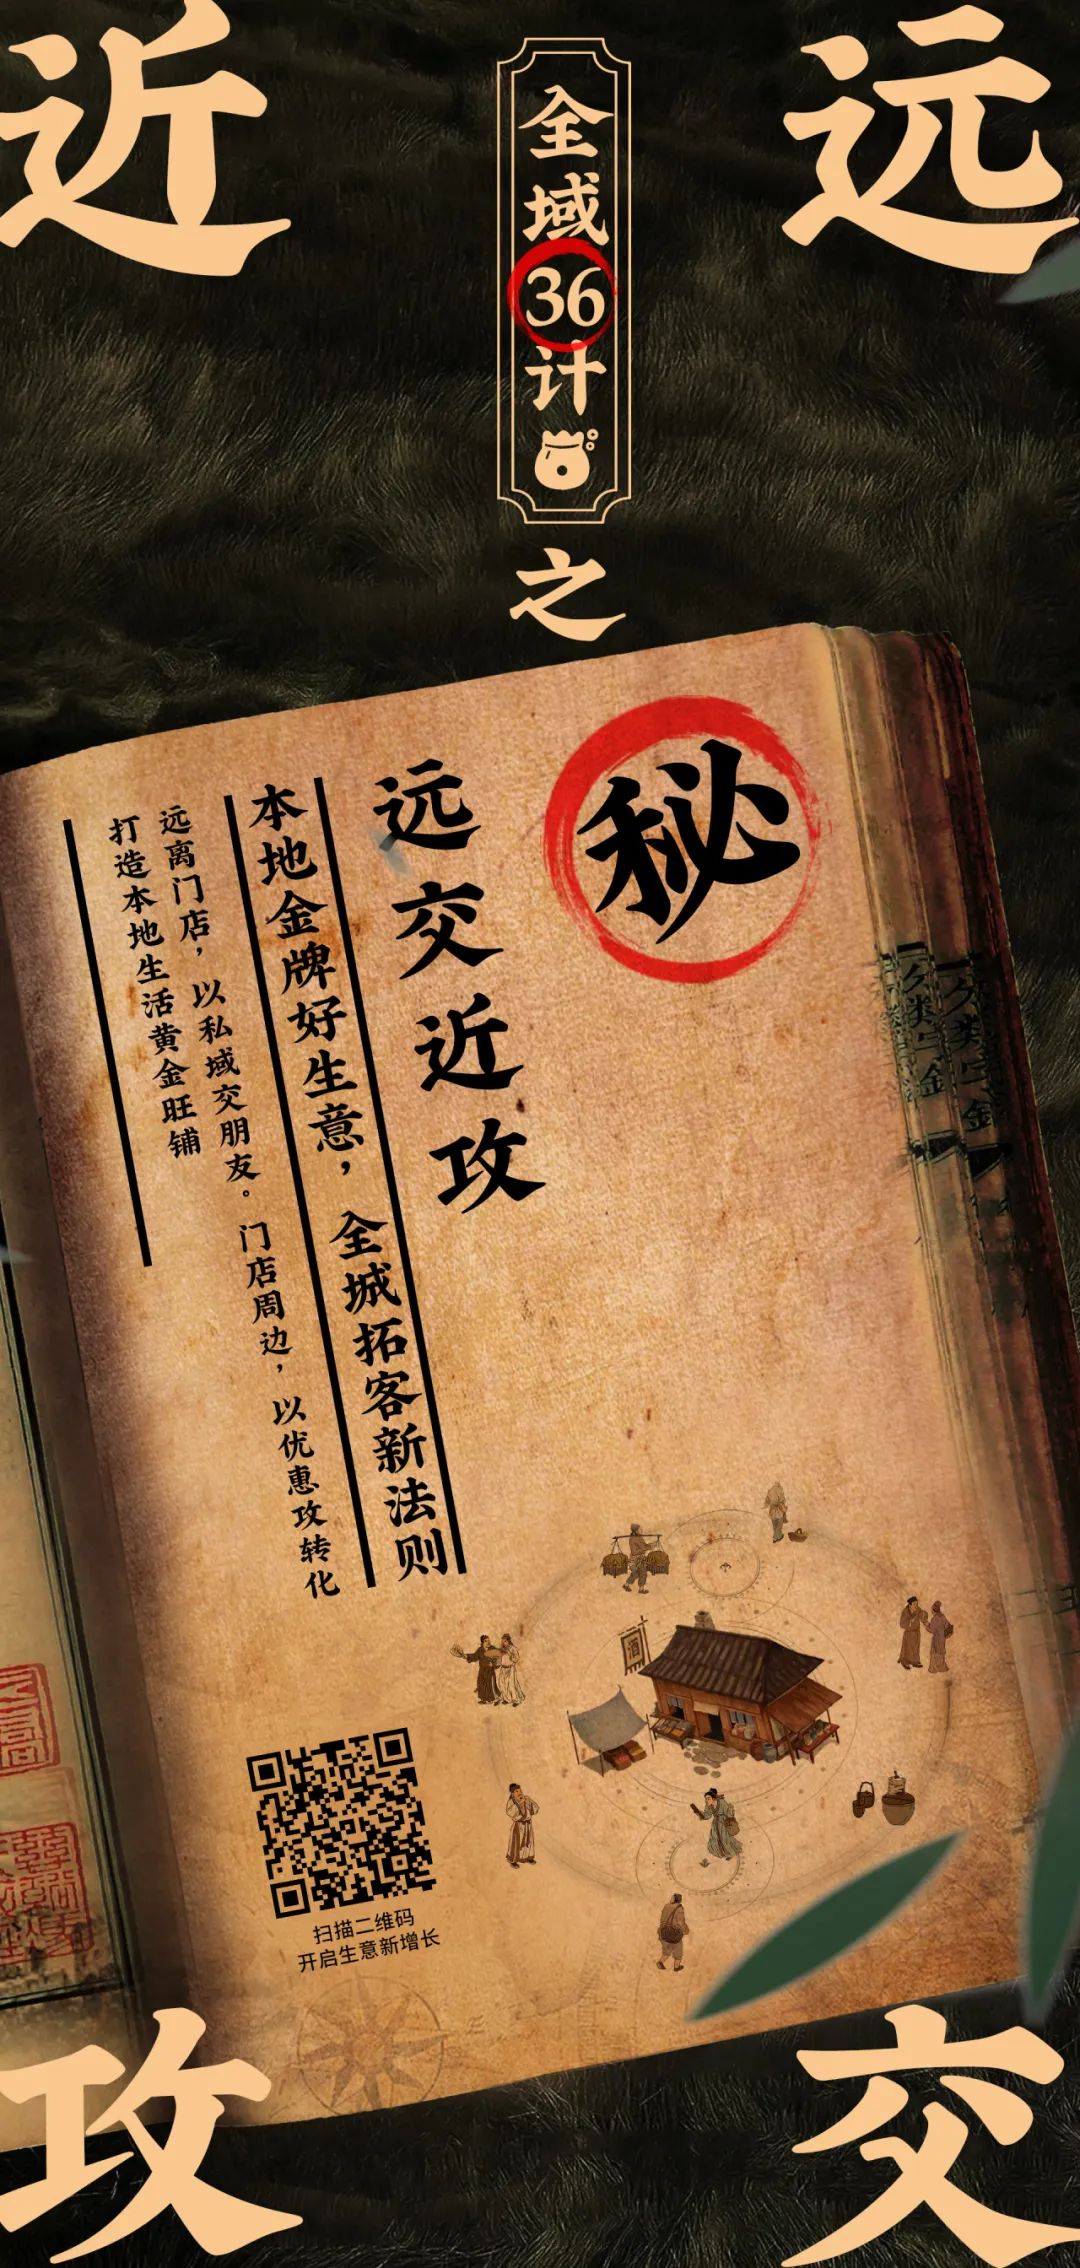 远
交
近
攻
全域36计
之
秘
远交近攻
本地金牌好生意，全城拓客新法则
远离门店，以私域交朋友。门店周边，以优惠攻转化
打造本地生活黄金旺铺
酒
扫描二维码
开启生意新增长